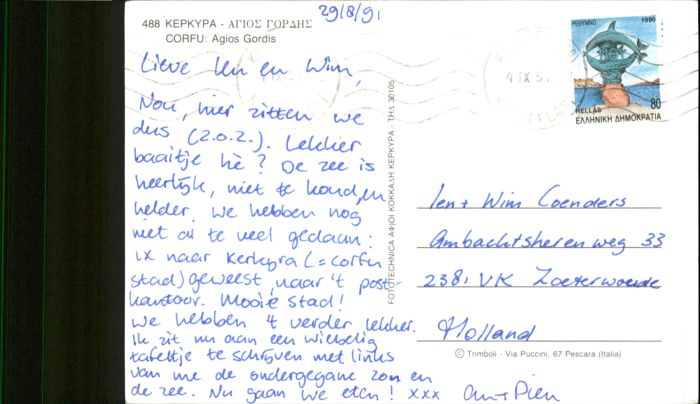 29/8/91
488 ΚΕΡΚΥΡΑ - ΑΓΙΟΣ ΓΟΡΔΗΣ
CORFU: Agios Gordis
Lieve Ien en Wim,
Nou, hier zitten we
dus (z.o.z.). Lekker
baaitje hè? De zee is
heerlijk, niet te koud, en
helder. We hebben nog
niet al te veel gedaan:
1x naar Kerkyra (= corfu
stad) geweest, naar 't post-
kantoor. Mooie stad!
We hebben 't verder lekker.
Ik zit nu aan een wiebelig
tafeltje te schrijven met links
van me de ondergegane zon en
de zee. Nu gaan we eten! xxx
FOTOTECHNICA ΑΦ/ΟΙ ΚΟΚΚΑΛΗ ΚΕΡΚΥΡΑ - ΤΗΛ 30105
4 IX 91
ΡΕΘΥΜΝΟ 1990
80
HELLAS
ΕΛΛΗΝΙΚΗ ΔΗΜΟΚΡΑΤΙΑ
Ien + Wim Coenders
Ambachtsherenweg 33
2381 VK Zoeterwoude
Holland
© Trimboli - Via Puccini, 67 Pescara (Italia)